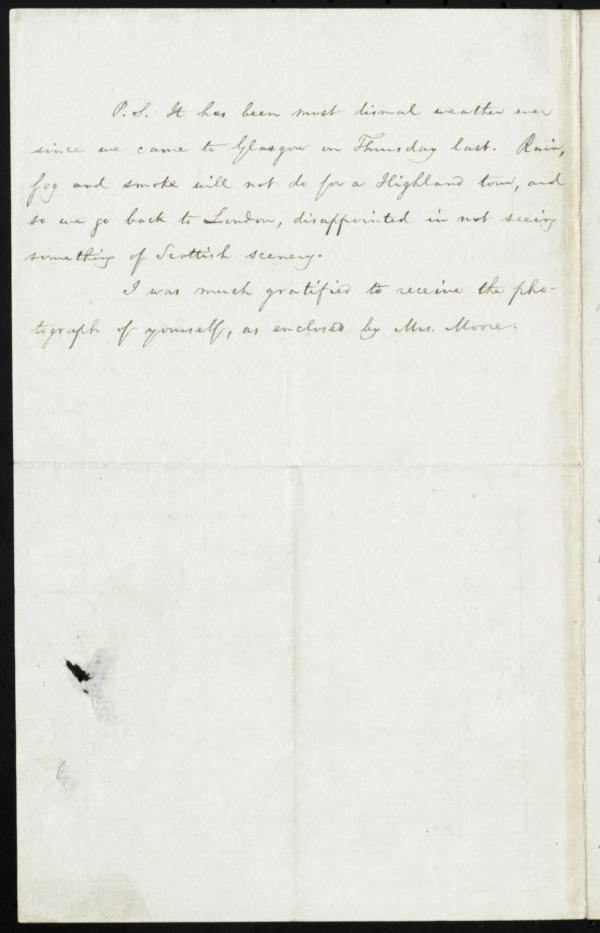 P. S. It has been most dismal weather ever
since we came to Glasgow on Thursday last. Rain,
fog and smoke will not do for a Highland tour, and
so we go back to London, disappointed in not seeing
something of Scottish scenery.
I was much gratified to receive the pho-
tograph of yourself, as enclosed by Mrs. Moore.